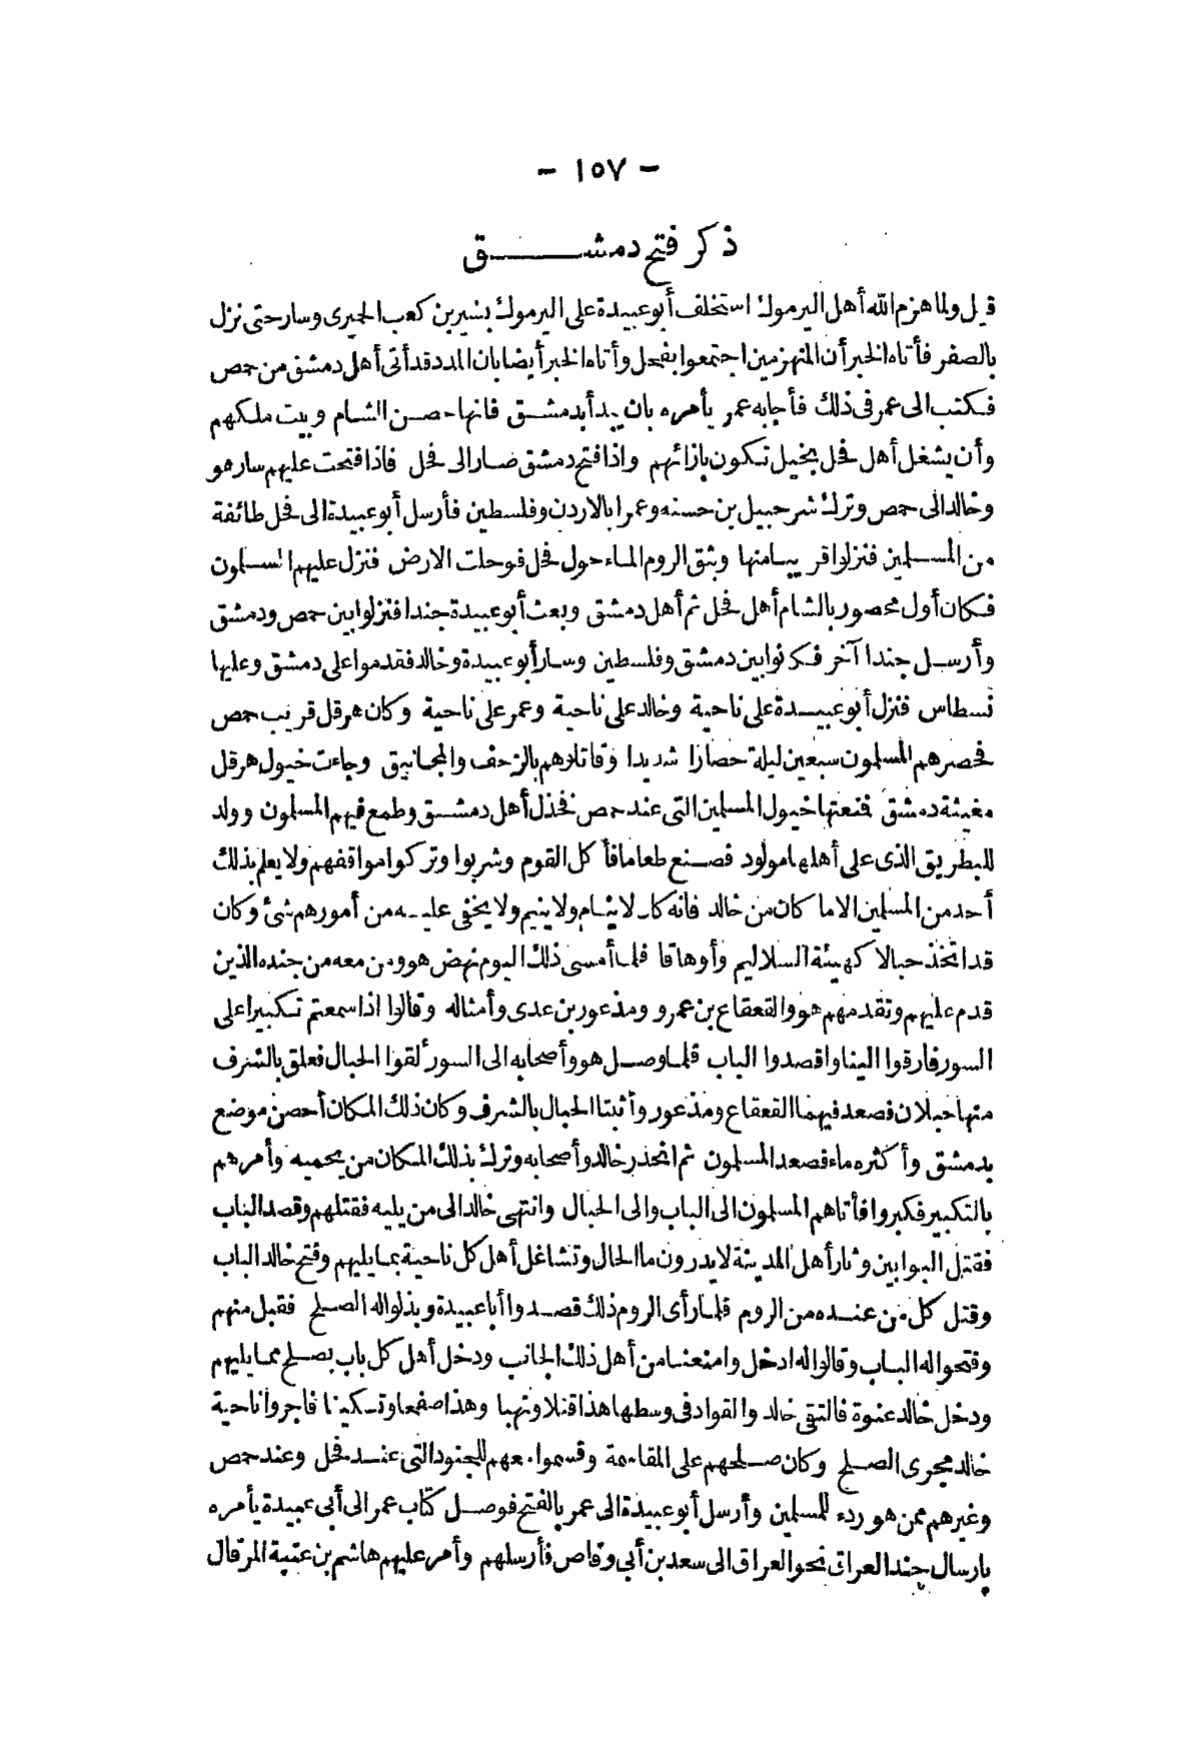 - ١٥٧ -
ذكر فتح دمشق
قيل ولما هزم الله أهل اليرموك استخلف أبو عبيدة على اليرموك بشير بن كعب الحميرى وسار حتى نزل
بالصفر فأتاه الخبر أن المنهزمين اجتمعوا بفحل وأتاه الخبر أيضا بان المدد قد أتى أهل دمشق من حمص
فكتب الى عمر فى ذلك فأجابه عمر يأمره بان يبدأ بدمشق فانها حصن الشام وبيت ملكهم
وأن يشغل أهل فحل بخيل تكون بازائهم واذا فتح دمشق صار الى فحل فاذا فتحت عليهم سار هو
وخالد الى حمص وترك شرحبيل بن حسنه وعمرا بالاردن وفلسطين فأرسل أبو عبيدة الى فحل طائفة
من المسلمين فنزلوا قريبا منها وبثق الروم الماء حول فحل فوحلت الارض فنزل عليهم المسلمون
فكان أول محصور بالشام أهل فحل ثم أهل دمشق وبعث أبو عبيدة جندا فنزلوا بين حمص ودمشق
وأرسل جندا آخر فكانوا بين دمشق وفلسطين وسار أبو عبيدة وخالد فقدموا على دمشق وعليها
نسطاس فنزل أبو عبيدة على ناحية وخالد على ناحية وعمر على ناحية وكان هرقل قريب حمص
فحصرهم المسلمون سبعين ليلة حصارا شديدا وقاتلاوهم بالزحف والمجانيق وجاءت خيول هرقل
مغيثة دمشق فنعتها خيول المسلمين التى عند حمص فخذل أهل دمشق وطمع فيهم المسلمون وولد
للبطريق الذى على أهلها مولود فصنع طعاما فأكل القوم وشربوا وتركوا مواقفهم ولا يعلم بذلك
أحد من المسلمين الا ما كان من خالد فانه كان لا ينام ولا ينيم ولا يخفى عليه من أمورهم شئ وكان
قد اتخذ حبالا كهيئة السلاليم وأوهاقا فلما أمسى ذلك اليوم نهض هو ومن معه من جنده الذين
قدم عليهم وتقدمهم هو والقعقاع بن عمرو ومذعور بن عدى وأمثاله وقالوا اذا سمعتم تكبيرا على
السور فارقوا الينا واقصدوا الباب فلما وصل هو وأصحابه الى السور ألقوا الحبال فعلق بالشرف
منها حبلان فصعد فيهما القعقاع ومذعور وأثبتا الحبال بالشرف وكان ذلك المكان أحصن موضع
بدمشق وأكثره ماء فصعد المسلمون ثم انحدر خالد وأصحابه وترك بذلك المكان من يحميه وأمرهم
بالتكبير فكبروا فأتاهم المسلمون الى الباب والى الحبال وانتهى خالد الى من يليه فقتلهم وقصد الباب
فقتل البوابين وثار أهل المدينة لا يدرون ما الحال وتشاغل أهل كل ناحية بما يليهم وفتح خالد الباب
وقتل كل من عنده من الروم فلما رأى الروم ذلك قصدوا أبا عبيدة وبذلوا له الصلح فقبل منهم
وفتحوا له الباب وقالوا له ادخل وامنعنا من أهل ذلك الجانب ودخل أهل كل باب بصلح مما يليهم
ودخل خالد عنوة فالتقى خالد والقواد فى وسطها هذا قتلا ونهبا وهذا صفحا وتسكينا فأجروا ناحية
خالد مجرى الصلح وكان صلحهم على المقاسمة وقسموا معهم للجنود التى عند فحل وعند حمص
وغيرهم ممن هو ردء للمسلمين وأرسل أبو عبيدة الى عمر بالفتح فوصل كتاب عمر الى أبى عبيدة يأمره
بارسال جند العراق نحو العراق الى سعد بن أبى وقاص فأرسلهم وأمر عليهم هاشم بن عتبة المرقال